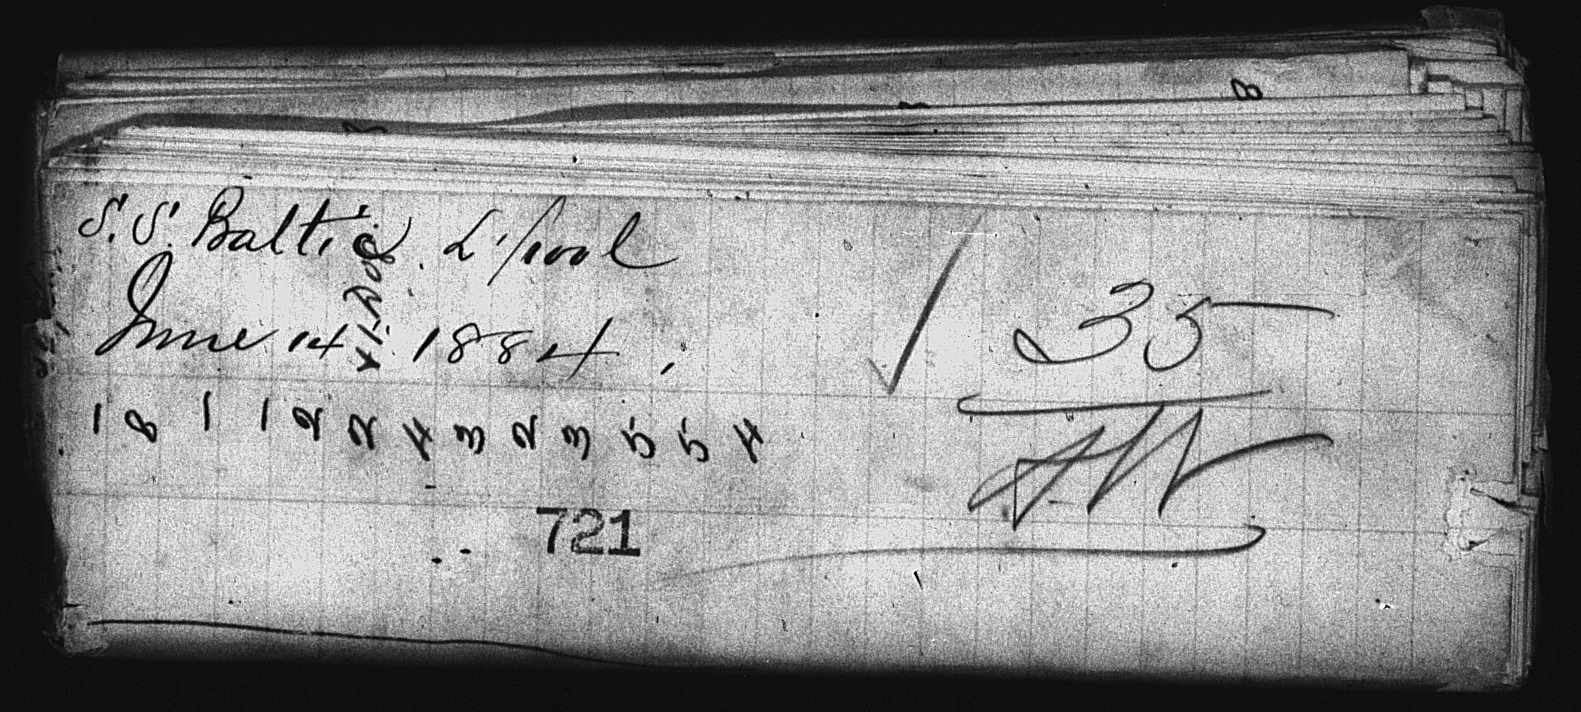 S.S. Baltic. L'pool
June 14. 1884.
35
1 8 1 1 2 2 4 3 2 3 5 5 4
721